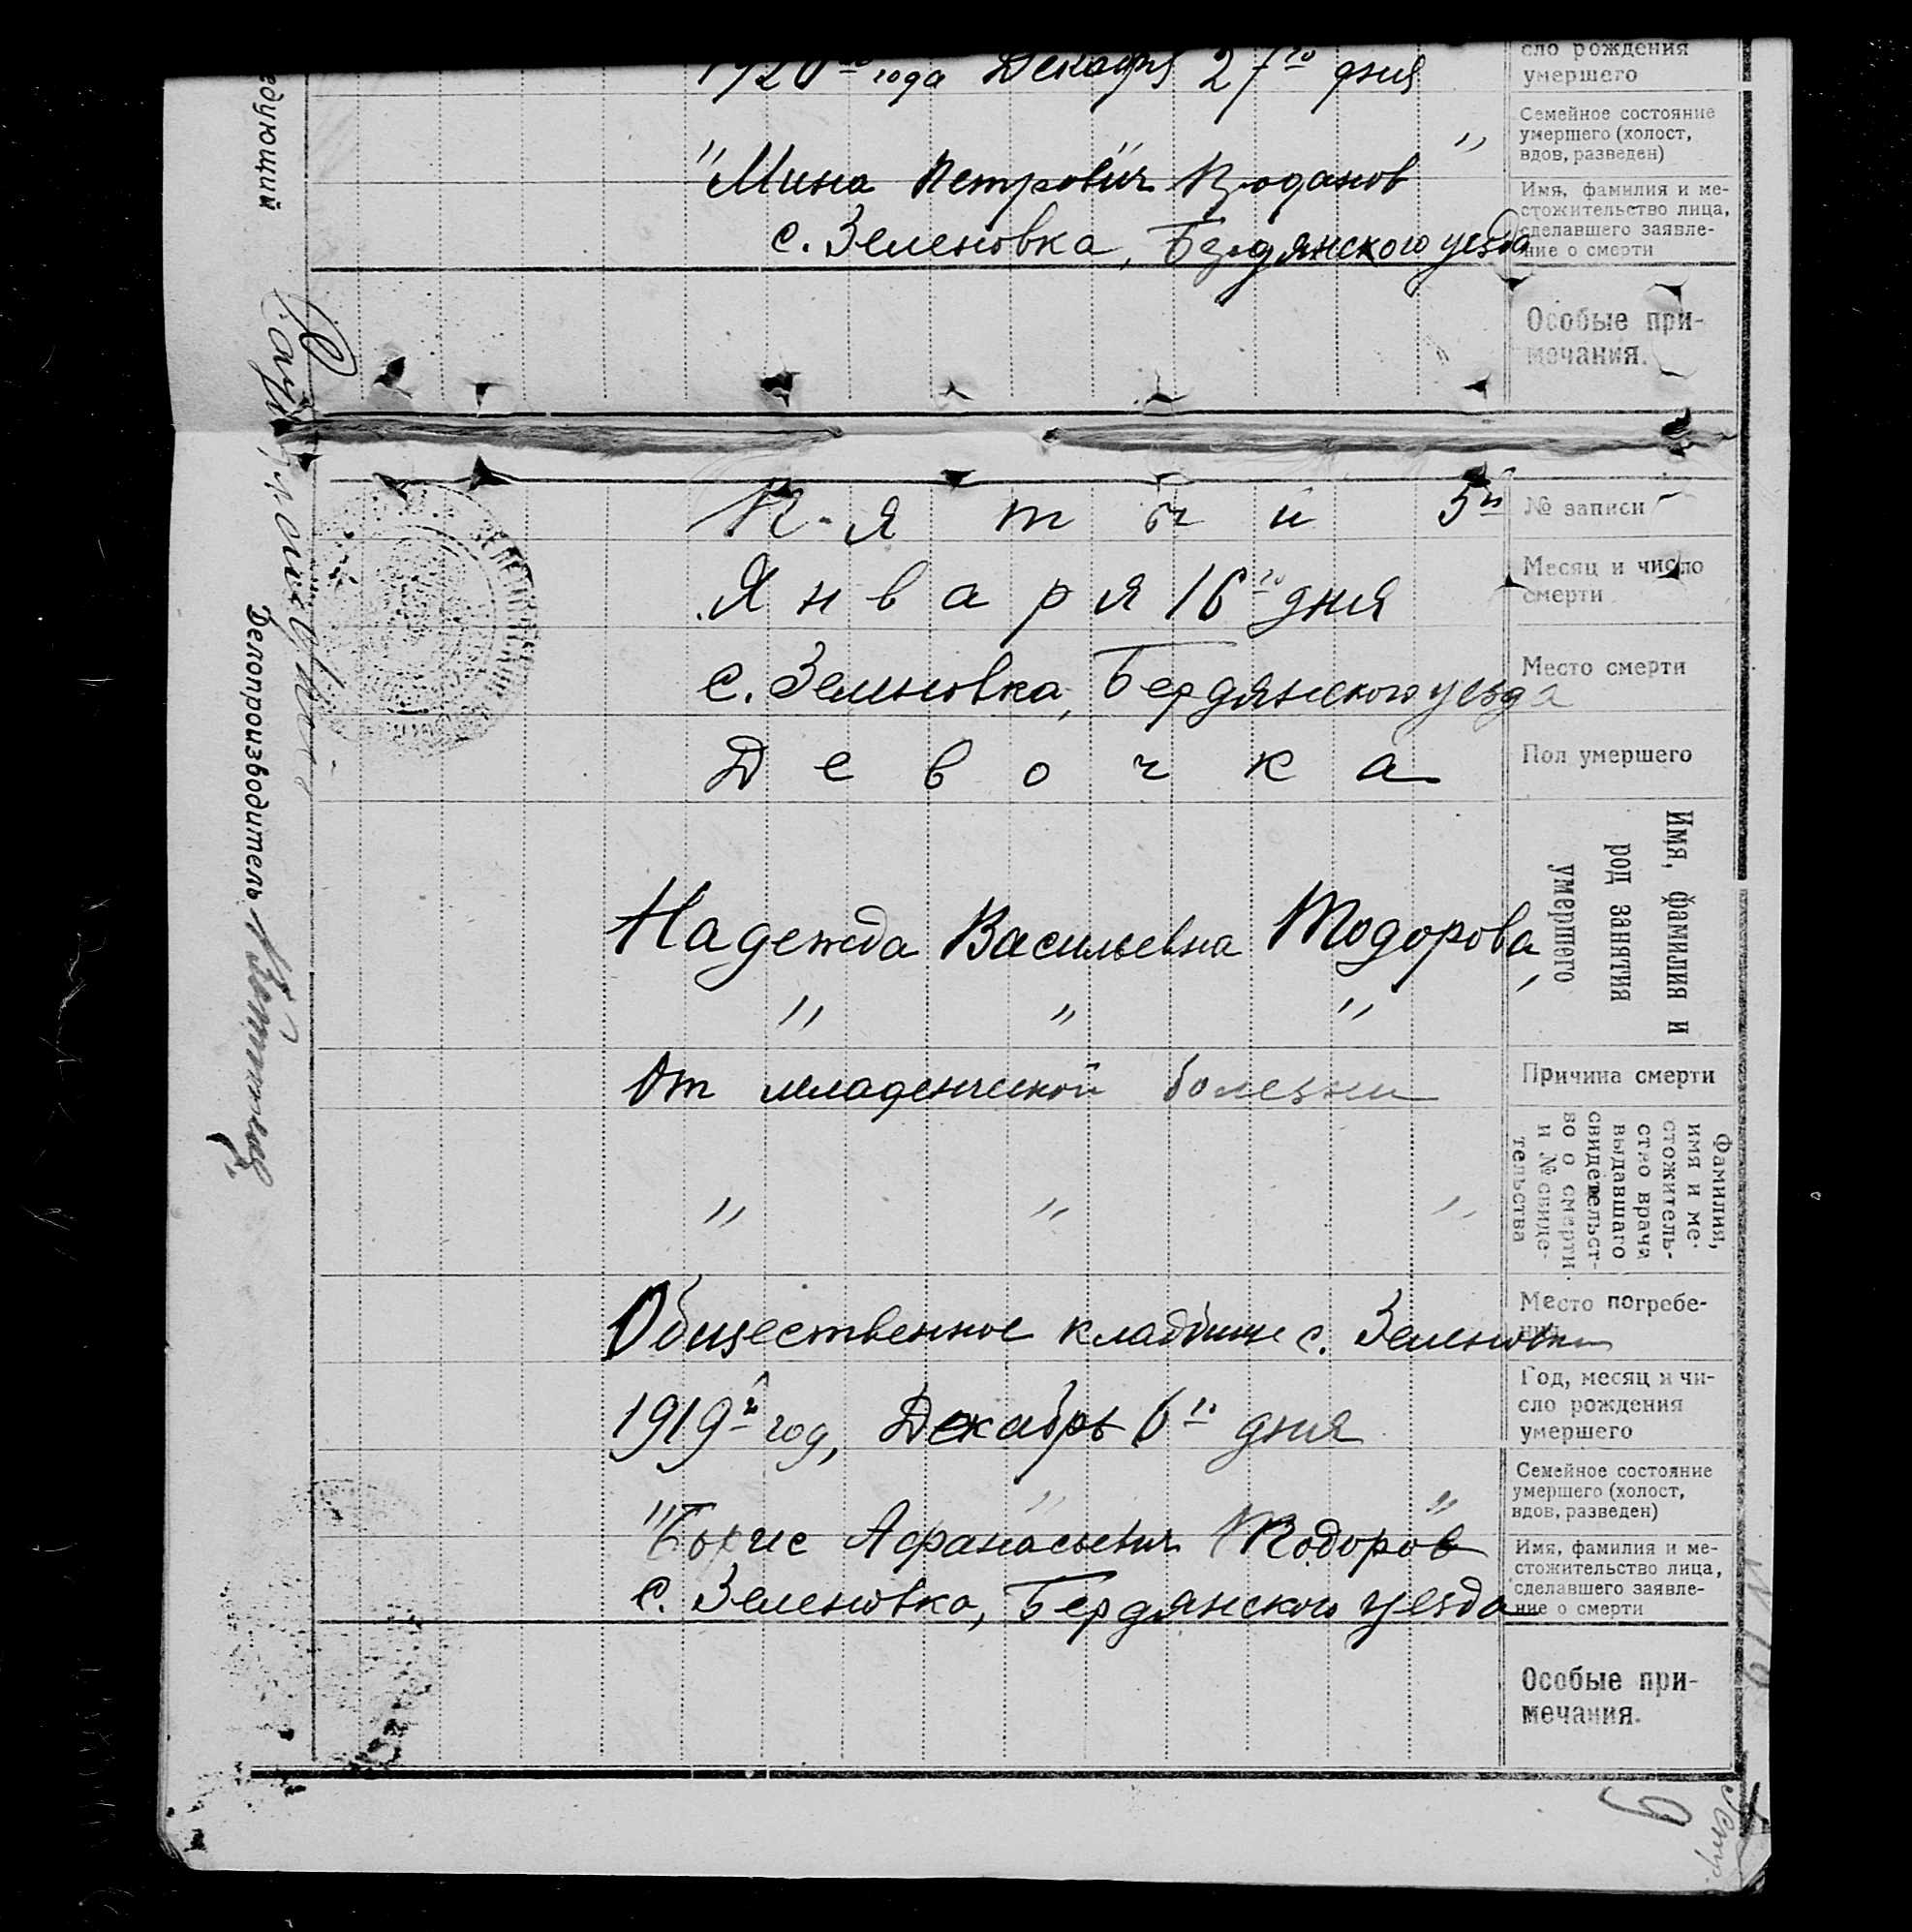 1920 года Декабря 27го дня
сло рождения
умершего
" "
Семейное состояние
умершего (холост,
вдов, разведен)
Мина Петрович
с. Зеленовка, Бердянского уезда
Имя, фамилия и ме-
стожительство лица,
сделавшего заявле-
ние о смерти
Особые при-
мечания.
Пятый 5й
№ записи
Января 16го дня
Месяц и число
смерти
с. Зеленовка, Бердянского уезда
Место смерти
Девочка
Пол умершего
Надежда Васильевна Тодорова,
" " "
Имя, фамилия и
род занятия
умершего
От младенческой болезни
Причина смерти
" " "
Фамилия,
имя и ме-
стожитель-
ство врача
выдавшаго
свидетельст-
во о смерти
и № свиде-
тельства
Общественное кладбище с. Зеленовки
Место погребе-
1919го год, Декабрь 6го дня
Год, месяц и чи-
сло рождения
умершего
" " "
Семейное состояние
умершего (холост,
вдов, разведен)
Борис Афанасьевич Тодоров
с. Зеленовка, Бердянского уезда
Имя, фамилия и ме-
стожительство лица,
сделавшего заявле-
ние о смерти
Особые при-
мечания.
едующий
Делопроизводитель
9